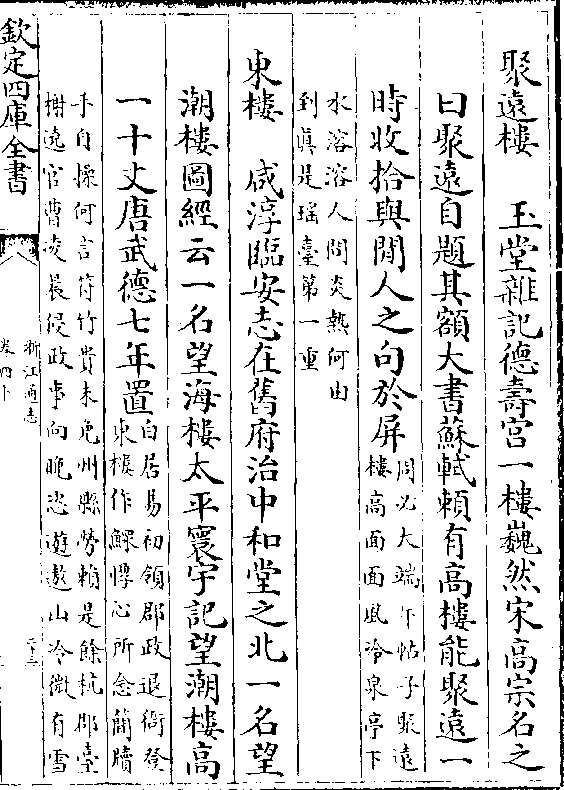 聚遠樓　玉堂雜記德壽宫一樓巍然宋高宗名之
曰聚遠自題其額大書蘇軾頼有高樓能聚遠一
時收拾與閒人之句於屏
周必大端午帖子聚遠
樓髙面面風冷泉亭下
水溶溶人間炎熱何由
到眞是瑶臺第一重
東樓　咸淳臨安志在舊府治中和堂之北一名望
潮樓圖經云一名望海樓太平寰宇記望潮樓高
一十丈唐武德七年置
白居易初領郡政退衙登
東樓作鰥惸心所念簡牘
手自操何言符竹貴未免州縣勞頼是餘杭郡臺
榭遶官曹凌晨侵政事向晚恣遊遨山冷微有雪
欽定四庫全書
浙江通志
卷四十
二十三